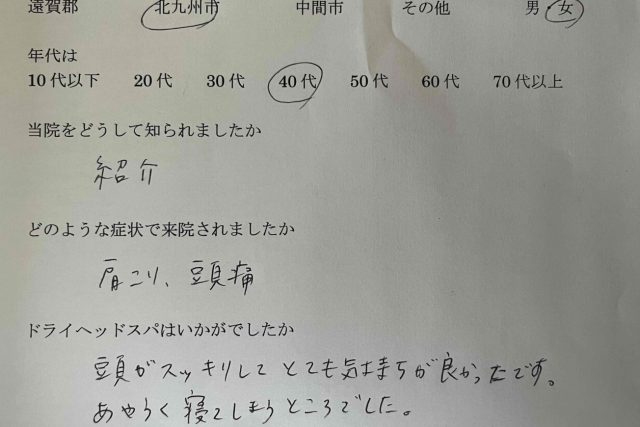 遠賀郡 北九州市 中間市 その他 男・女
年代は
10代以下 20代 30代 40代 50代 60代 70代以上
当院をどうして知られましたか
紹介
どのような症状で来院されましたか
肩こり、頭痛
ドライヘッドスパはいかがでしたか
頭がスッキリしてとても気持ちが良かったです。
あやうく寝てしまうところでした。